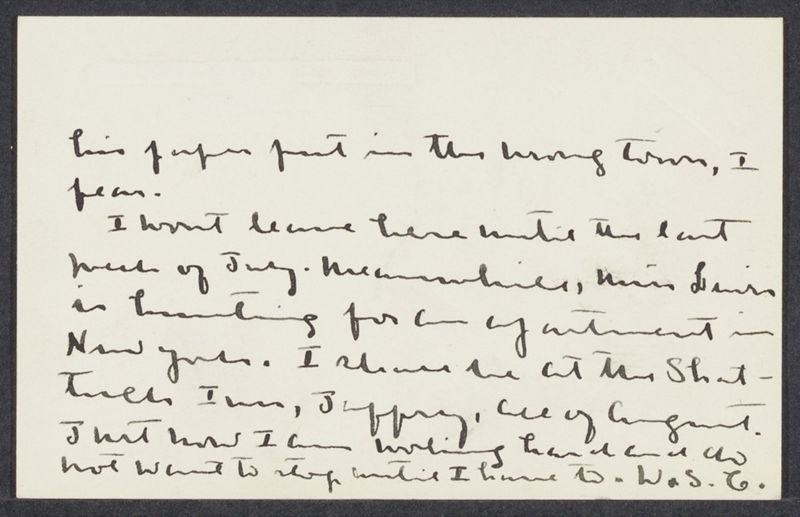 his paper put in the wrong town, I
fear.
I wont leave here until the last
week of July. Meanwhile, Miss Lewis
is hunting for an apartment in
New York. I shall be at the Shat-
tuck Inn, Jaffrey, all of August.
Just now I am working hard and do
not want to stop until I have to. W.S.C.